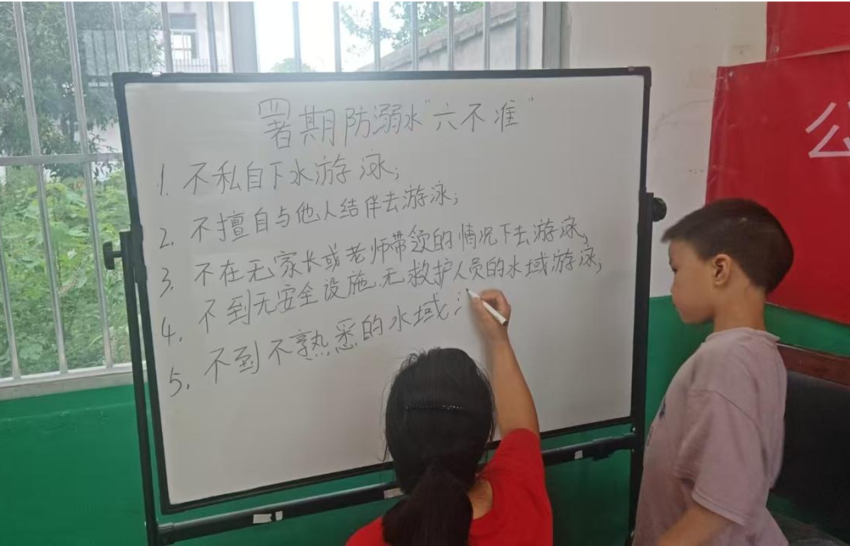 暑期防溺水“六不准”
1. 不私自下水游泳;
2. 不擅自与他人结伴去游泳;
3. 不在无家长或老师带领的情况下去游泳;
4. 不到无安全设施、无救护人员的水域游泳;
5. 不到不熟悉的水域
公